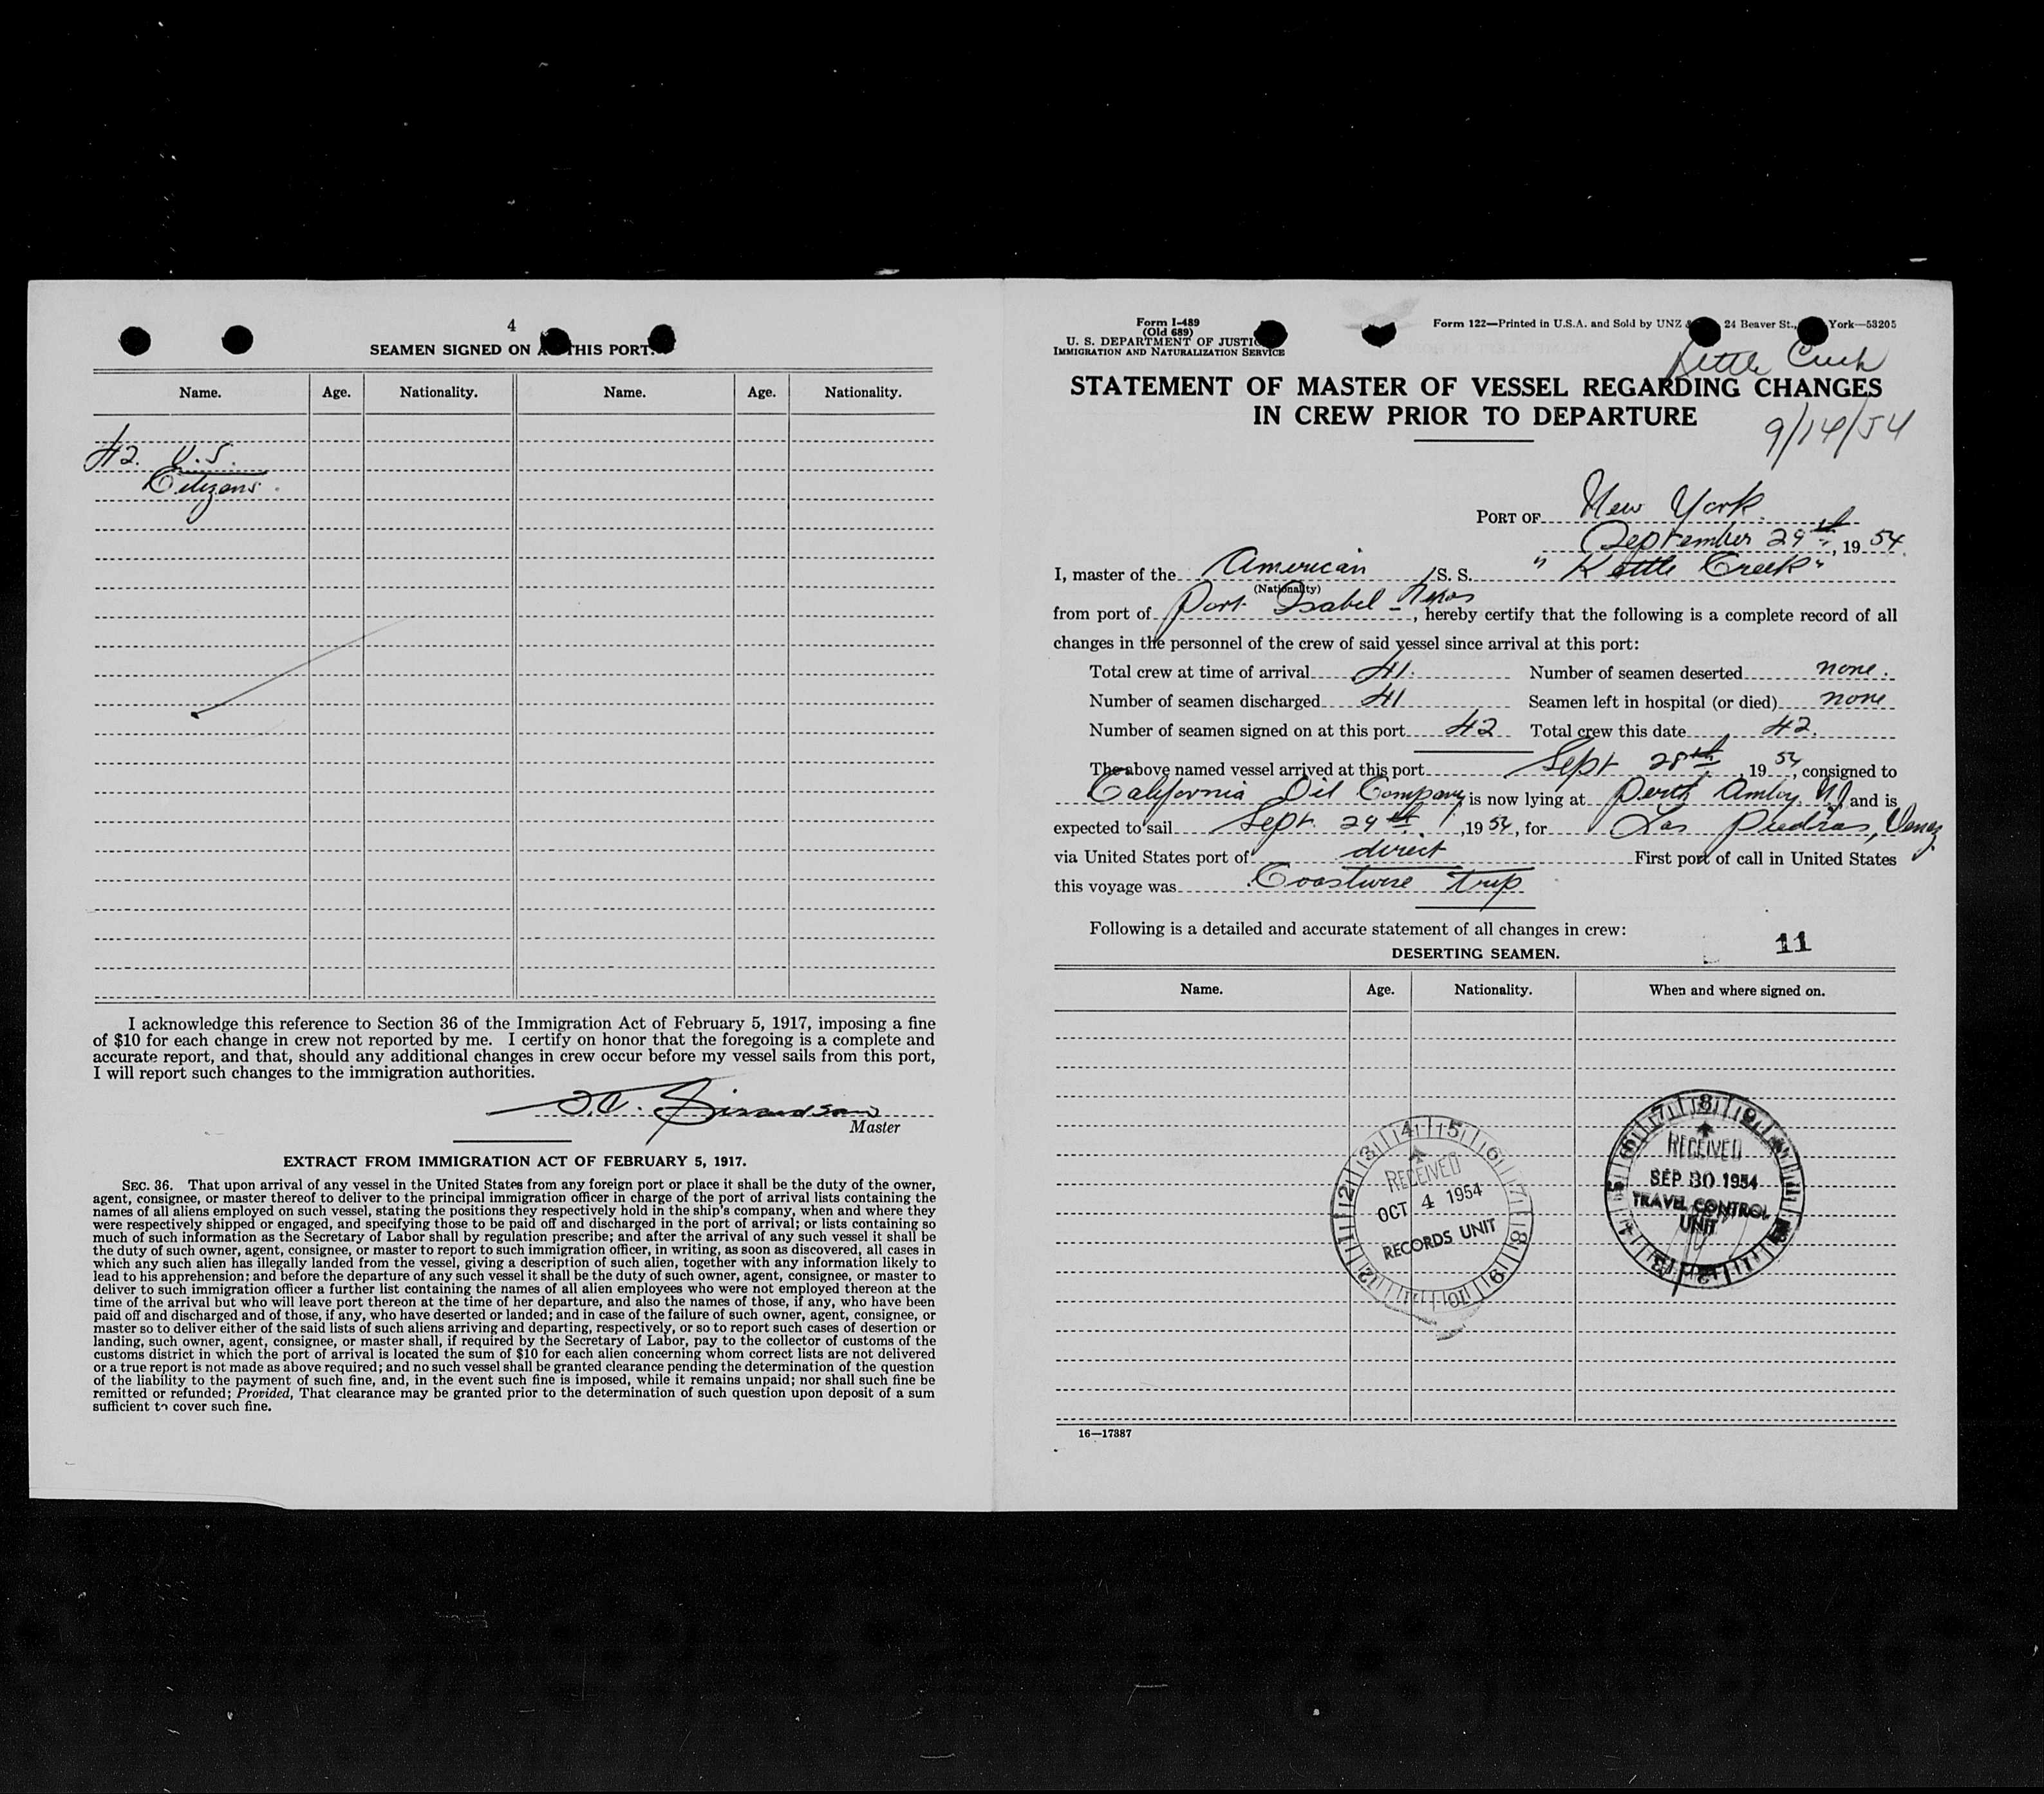 4
SEAMEN SIGNED ON THIS PORT.
Name. Age. Nationality. Name. Age. Nationality.
42. U.S.
Citizens.
I acknowledge this reference to Section 36 of the Immigration Act of February 5, 1917, imposing a fine
of $10 for each change in crew not reported by me. I certify on honor that the foregoing is a complete and
accurate report, and that, should any additional changes in crew occur before my vessel sails from this port,
I will report such changes to the immigration authorities.
Master
EXTRACT FROM IMMIGRATION ACT OF FEBRUARY 5, 1917.
SEC. 36. That upon arrival of any vessel in the United States from any foreign port or place it shall be the duty of the owner,
agent, consignee, or master thereof to deliver to the principal immigration officer in charge of the port of arrival lists containing the
names of all aliens employed on such vessel, stating the positions they respectively hold in the ship's company, when and where they
were respectively shipped or engaged, and specifying those to be paid off and discharged in the port of arrival; or lists containing so
much of such information as the Secretary of Labor shall by regulation prescribe; and after the arrival of any such vessel it shall be
the duty of such owner, agent, consignee, or master to report to such immigration officer, in writing, as soon as discovered, all cases in
which any such alien has illegally landed from the vessel, giving a description of such alien, together with any information likely to
lead to his apprehension; and before the departure of any such vessel it shall be the duty of such owner, agent, consignee, or master to
deliver to such immigration officer a further list containing the names of all alien employees who were not employed thereon at the
time of the arrival but who will leave port thereon at the time of her departure, and also the names of those, if any, who have been
paid off and discharged and of those, if any, who have deserted or landed; and in case of the failure of such owner, agent, consignee, or
master so to deliver either of the said lists of such aliens arriving and departing, respectively, or so to report such cases of desertion or
landing, such owner, agent, consignee, or master shall, if required by the Secretary of Labor, pay to the collector of customs of the
customs district in which the port of arrival is located the sum of $10 for each alien concerning whom correct lists are not delivered
or a true report is not made as above required; and no such vessel shall be granted clearance pending the determination of the question
of the liability to the payment of such fine, and, in the event such fine is imposed, while it remains unpaid; nor shall such fine be
remitted or refunded; Provided, That clearance may be granted prior to the determination of such question upon deposit of a sum
sufficient to cover such fine.
Form I-489
(Old 689)
U. S. DEPARTMENT OF JUSTIC
IMMIGRATION AND NATURALIZATION SERVICE
Form 122—Printed in U.S.A. and Sold by UNZ & 24 Beaver St., York—53205
Kettle Creek
STATEMENT OF MASTER OF VESSEL REGARDING CHANGES
IN CREW PRIOR TO DEPARTURE
9/14/54
PORT OF New York.
September 29th, 1954.
I, master of the American S. S. "Kettle Creek"
(Nationality)
from port of Port Isabel - Texas, hereby certify that the following is a complete record of all
changes in the personnel of the crew of said vessel since arrival at this port:
Total crew at time of arrival 41. Number of seamen deserted none.
Number of seamen discharged 41 Seamen left in hospital (or died) none
Number of seamen signed on at this port 42 Total crew this date 42.
The above named vessel arrived at this port Sept 28th, 1954, consigned to
California Oil Company is now lying at Perth Amboy N.J and is
expected to sail Sept. 29th, 1954, for Las Piedras, Venez
via United States port of direct First port of call in United States
this voyage was Coastwise trip
Following is a detailed and accurate statement of all changes in crew:
11
DESERTING SEAMEN.
Name. Age. Nationality. When and where signed on.
RECEIVED
OCT 4 1954
RECORDS UNIT
RECEIVED
SEP 30 1954
TRAVEL CONTROL
UNIT
16—17387